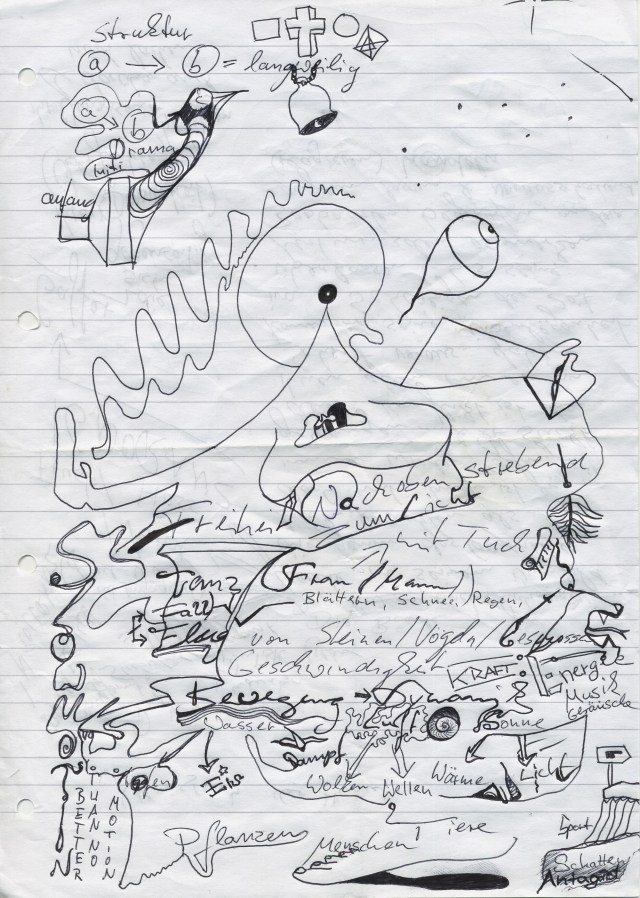 Struktur
a → b = langweilig
a
b
c
Drama
mini
anfang
Nach oben strebend
zum Licht
Treiben
mit Tuch
Tanz
(Frau/Mann)
Fall
Blättern, Schnee/Regen,
Flug
von Steinen/Vögeln/Geschosse
Geschwindigkeit
KRAFT
Energie
Musik
Geräusche
Bewegung → Dynamik
Wasser
Sonne
Dampf
Eis
Wolken
Wellen
Wärme
Licht
SLOW MOTION
BETTER
THAN NO
MOTION
Pflanzen
Menschen
Tiere
Sport
Schatten